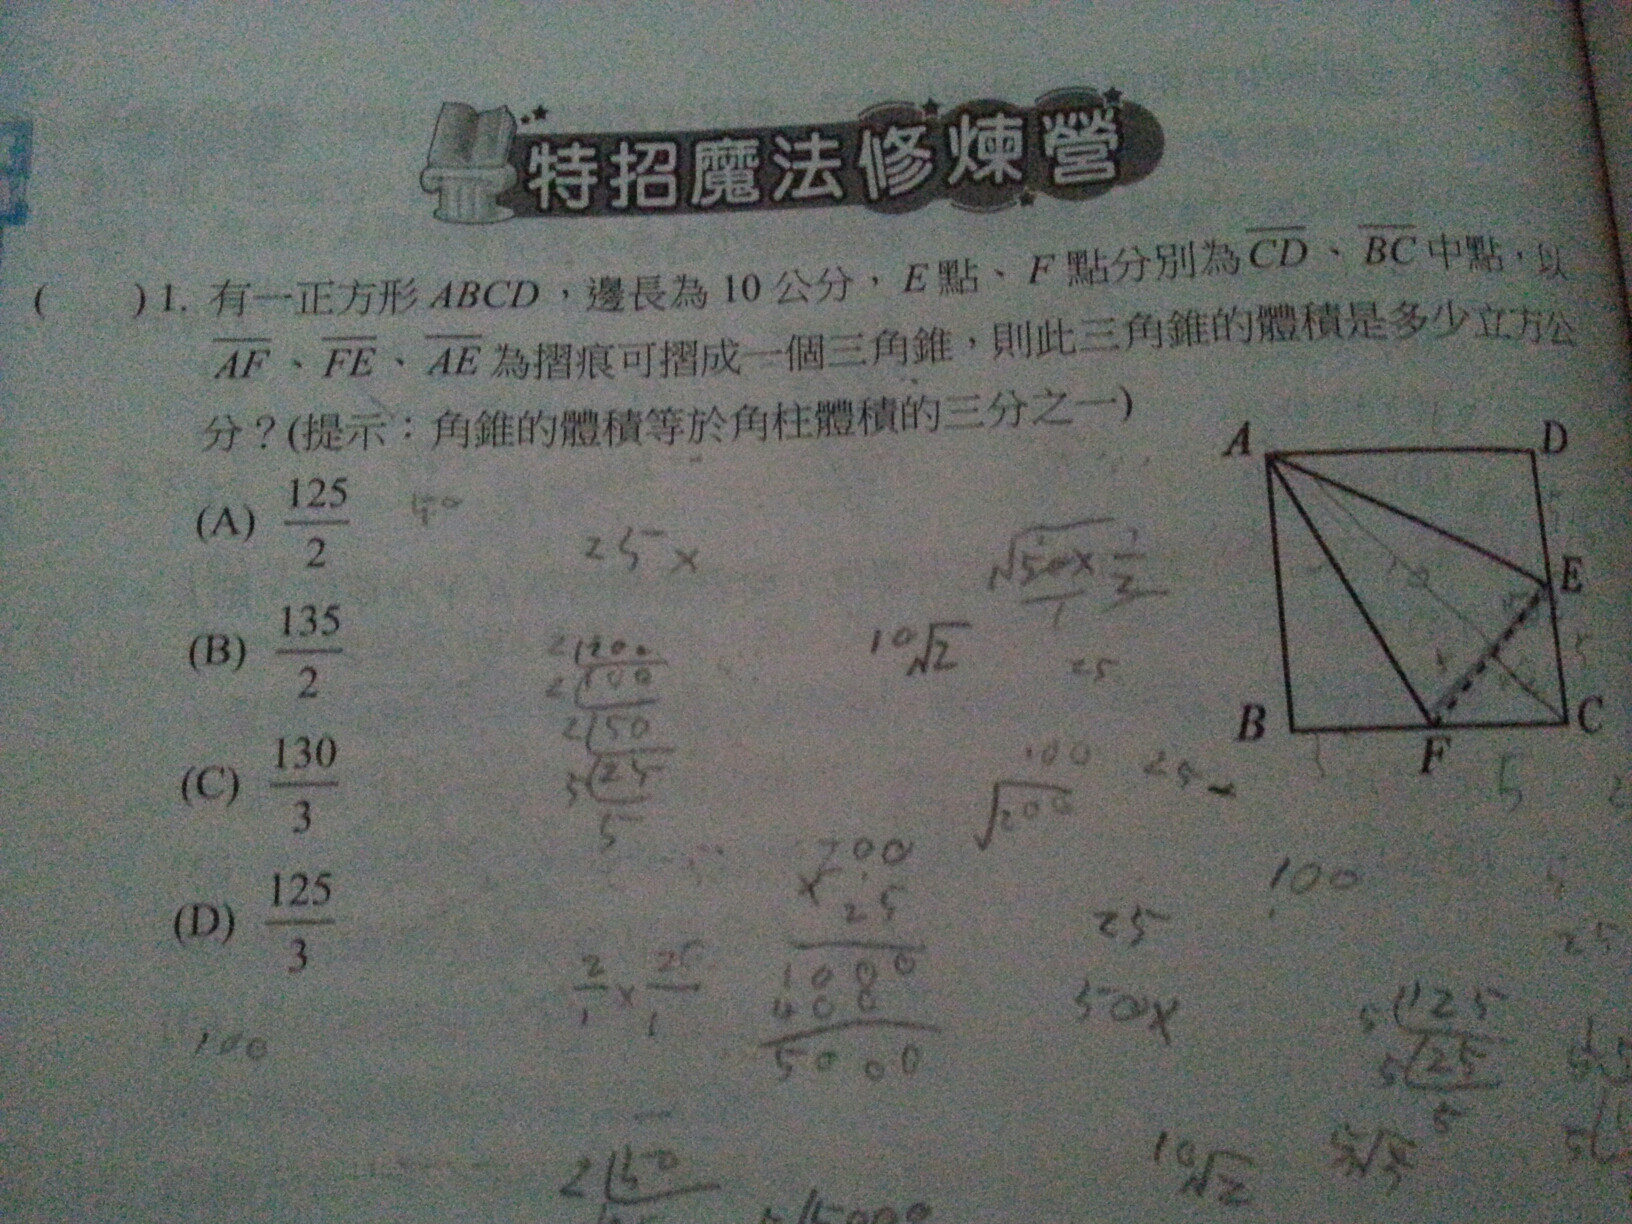 特招魔法修煉營
( )1. 有一正方形ABCD,邊長為10公分,E點、F點分別為CD、BC中點,以
AF、FE、AE為摺痕可摺成一個三角錐,則此三角錐的體積是多少立方公
分?(提示:角錐的體積等於角柱體積的三分之一)
A D
(A) 125/2
40
25x
√50x 1/2
1
E
(B) 135/2
2 200
2 100
2 50
5 25
5
10√2
25
B F C
5
(C) 130/3
100
√200
25-
5
(D) 125/3
200
x 25
1000
400
5000
100
25
25
2/1 x 25/1
50x
5 125
5 25
5
100
2 50
10√2
5√5